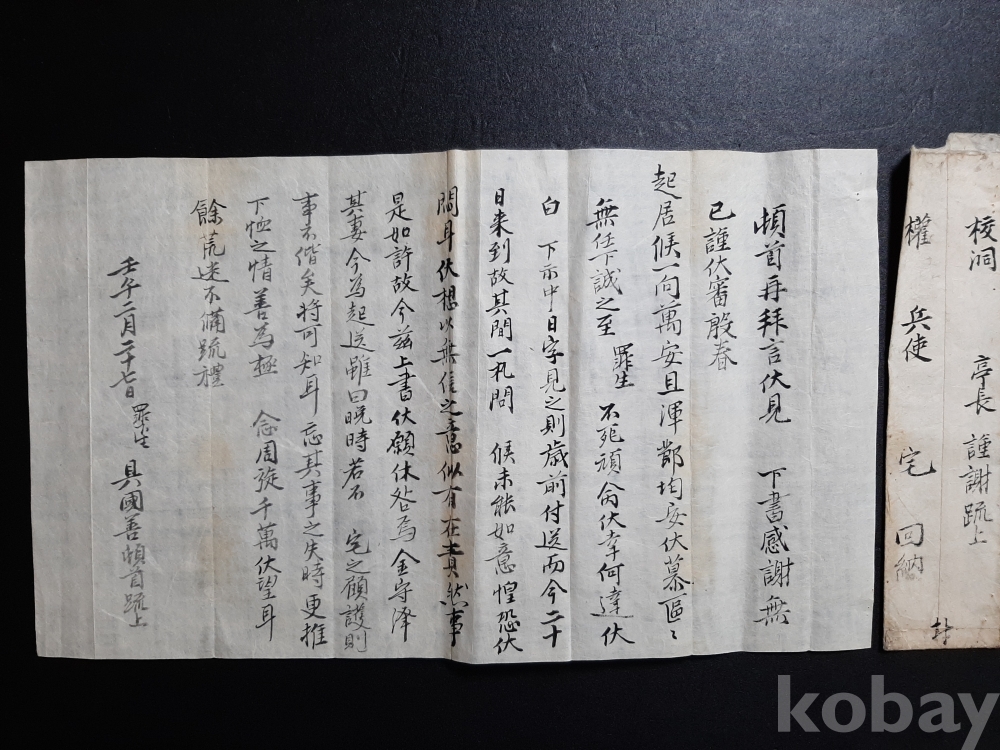 頓首再拜言伏見 下書感謝無
已謹伏審殷春
起居候一向萬安且渾節均安伏慕區〻
無任下誠之至 罪生 不死頑命伏幸何達伏
白 下示中日字見之則歲前付送而今二十
日來到故其間一札問 候未能如意惶恐伏
悶耳伏想以無信之意似有在責然事
是如許故今玆上書伏願休咎焉金守澤
其妻今為起送雖曰晩時若不 宅之顧護則
事不偕矣將可知耳忘其事之失時更推
下恤之情善為極 念周旋千萬伏望耳
餘荒迷不備疏禮
壬午二月二十七日 罪生 具國善頓首疏上
校洞 亭長 謹謝疏上
權 兵使 宅 回納
封
kobay